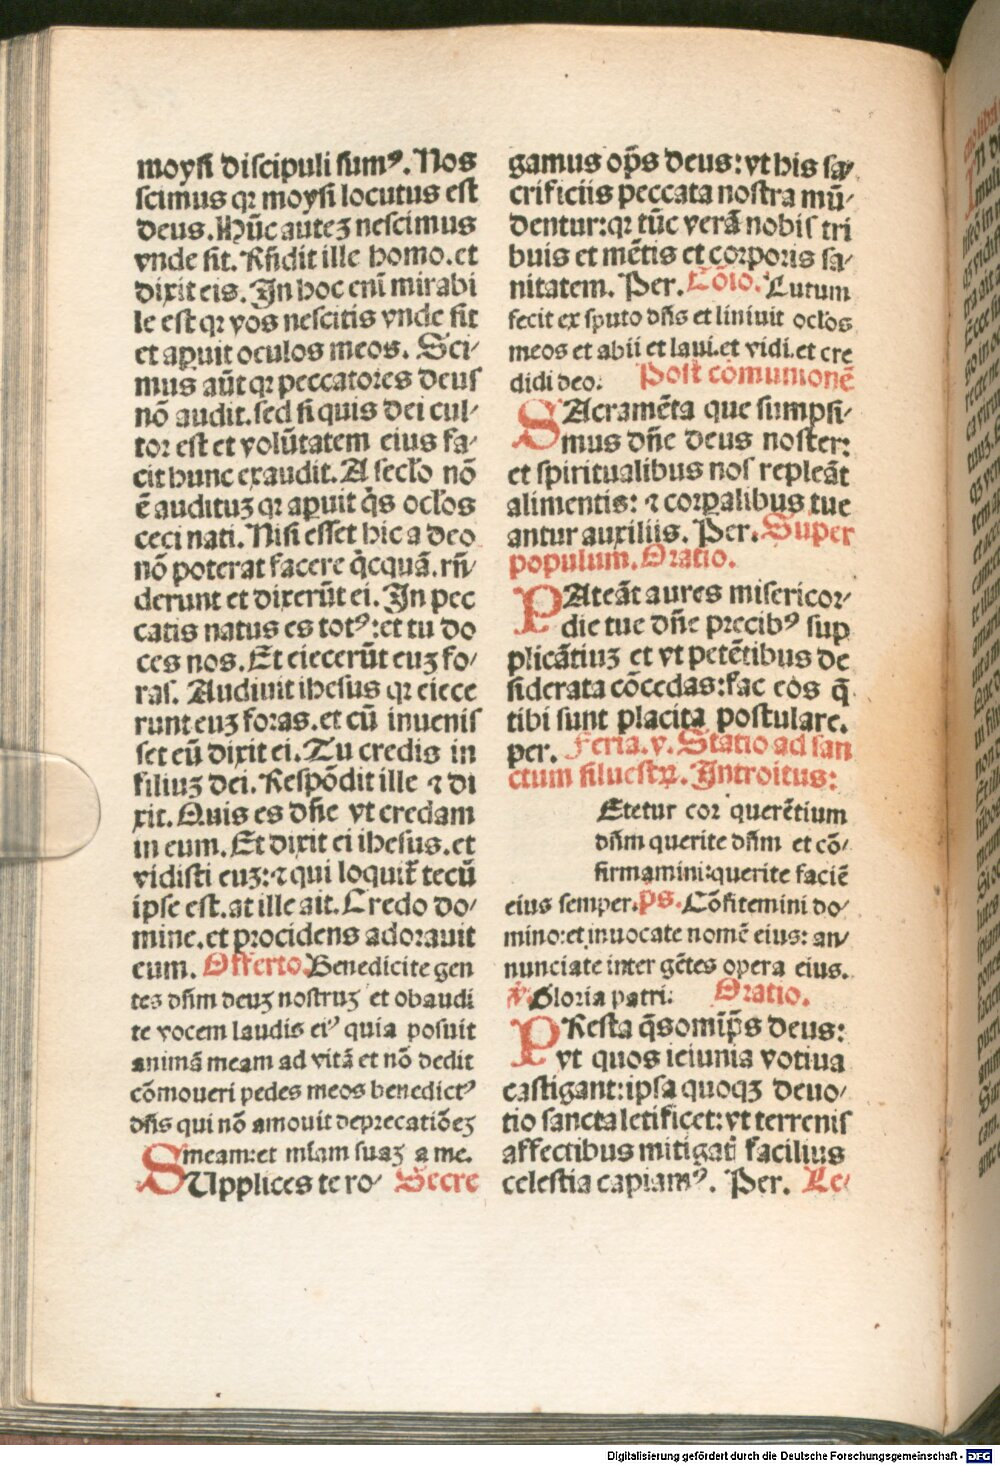 moysi discipuli sumꝰ. Nos
scimus qꝛ moysi locutus est
deus. Hūc auteʒ nescimus
vnde sit. Rn̄dit ille homo. et
dixit eis. In hoc enī mirabi
le est qꝛ vos nescitis vnde sit
et aꝑuit oculos meos. Sci⸗
mus aūt qꝛ peccatores deus
nō audit. sed si quis dei cul⸗
tor est et volūtatem eius fa⸗
cit hunc exaudit. A secl'o nō
ē audituʒ qꝛ aꝑuit q̇s ocl'os
ceci nati. Nisi esset hic a deo
nō poterat facere q̇cquā. rn̄
derunt et dixerūt ei. In pec
catis natus es totꝰ: et tu do
ces nos. Et eiecerūt euʒ fo⸗
ras. Audiuit ihesus qꝛ eiece
runt euʒ foras. et cū inuenis
set eū dixit ei. Tu credis in
filiuʒ dei. Respōdit ille ⁊ di
xit. Quis es dn̄e vt credam
in eum. Et dixit ei ihesus. et
vidisti euʒ: ⁊ qui loquit᷑ tecū
ipse est. at ille ait. Credo do⸗
mine. et procidens adorauit
eum. Offerto. Benedicite gen
tes dn̄m deuʒ nostruʒ et obaudi
te vocem laudis eiꝰ quia posuit
animā meam ad vitā et nō dedit
cōmoueri pedes meos benedictꝰ
dn̄s qui nō amouit deprecatiōeʒ
meam: et mīam suaʒ a me.
SUpplices te ro⸗ Secre
gamus op̄s deus: vt his sa⸗
crificiis peccata nostra mū⸗
dentur: qꝛ tūc verā nobis tri
buis et mētis et corporis sa⸗
nitatem. Per. Cōio. Lutum
fecit ex sputo dn̄s et liniuit ocl'os
meos et abii et laui. et vidi. et cre
didi deo. Post cōmunionē
SAcramēta que sumpsi⸗
mus dn̄e deus noster:
et spiritualibus nos repleāt
alimentis: ⁊ corꝑalibus tue
antur auxiliis. Per. Super
populum. Oratio.
PAteāt aures misericor⸗
die tue dn̄e precibꝰ sup
plicātiuʒ et vt petētibus de
siderata cōcedas: fac eos q̄
tibi sunt placita postulare.
per. Feria. v. Statio ad san
ctum siluestꝝ. Introitus:
Etetur cor querētium
dn̄m querite dn̄m et cō⸗
firmamini: querite faciē
eius semper. ps. Cōfitemini do⸗
mino: et inuocate nomē eius: an⸗
nunciate inter gētes opera eius.
℣. Gloria patri: Oratio.
PResta q̄s om̄ip̄s deus:
vt quos ieiunia votiua
castigant: ipsa quoqʒ deuo⸗
tio sancta letificet: vt terrenis
affectibus mitigati facilius
celestia capiamꝰ. Per. Le⸗
Digitalisierung gefördert durch die Deutsche Forschungsgemeinschaft - DFG